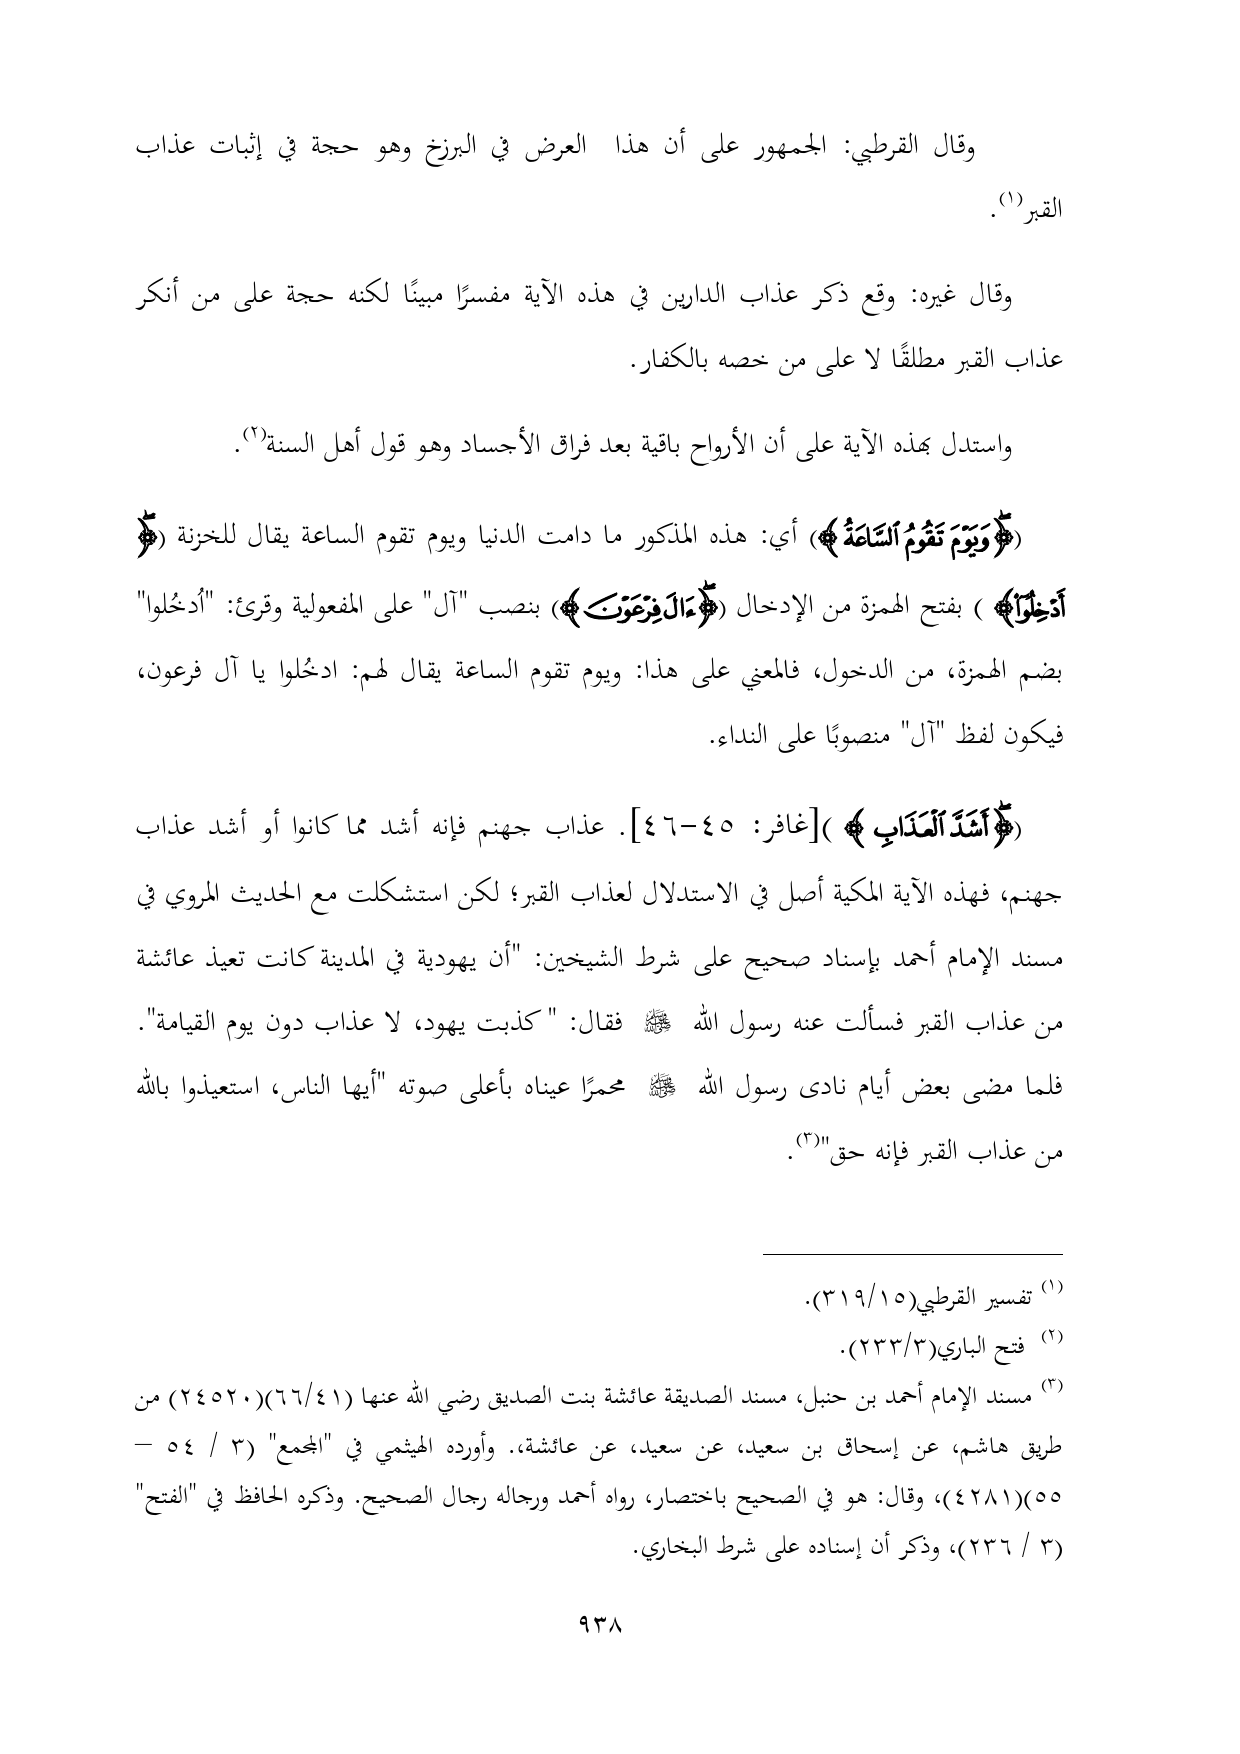 وقال القرطبي: الجمهور على أن هذا العرض في البرزخ وهو حجة في إثبات عذاب
القبر(١).
وقال غيره: وقع ذكر عذاب الدارين في هذه الآية مفسرًا مبينًا لكنه حجة على من أنكر
عذاب القبر مطلقًا لا على من خصه بالكفار.
واستدل بهذه الآية على أن الأرواح باقية بعد فراق الأجساد وهو قول أهل السنة(٢).
(﴿وَيَوْمَ تَقُومُ ٱلسَّاعَةُ﴾) أي: هذه المذكور ما دامت الدنيا ويوم تقوم الساعة يقال للخزنة (﴿
أَدْخِلُوٓاْ﴾ ) بفتح الهمزة من الإدخال (﴿ءَالَ فِرْعَوْنَ﴾) بنصب "آل" على المفعولية وقرئ: "اُدخُلوا"
بضم الهمزة، من الدخول، فالمعني على هذا: ويوم تقوم الساعة يقال لهم: ادخُلوا يا آل فرعون،
فيكون لفظ "آل" منصوبًا على النداء.
(﴿أَشَدَّ ٱلْعَذَابِ ﴾ )[غافر: ٤٥-٤٦]. عذاب جهنم فإنه أشد مما كانوا أو أشد عذاب
جهنم، فهذه الآية المكية أصل في الاستدلال لعذاب القبر؛ لكن استشكلت مع الحديث المروي في
مسند الإمام أحمد بإسناد صحيح على شرط الشيخين: "أن يهودية في المدينة كانت تعيذ عائشة
من عذاب القبر فسألت عنه رسول الله ﷺ فقال: " كذبت يهود، لا عذاب دون يوم القيامة".
فلما مضى بعض أيام نادى رسول الله ﷺ محمرًا عيناه بأعلى صوته "أيها الناس، استعيذوا بالله
من عذاب القبر فإنه حق"(٣).
(١) تفسير القرطبي(٣١٩/١٥).
(٢) فتح الباري(٢٣٣/٣).
(٣) مسند الإمام أحمد بن حنبل، مسند الصديقة عائشة بنت الصديق رضي الله عنها (٦٦/٤١)(٢٤٥٢٠) من
طريق هاشم، عن إسحاق بن سعيد، عن سعيد، عن عائشة،. وأورده الهيثمي في "المجمع" (٣ / ٥٤ –
٥٥)(٤٢٨١)، وقال: هو في الصحيح باختصار، رواه أحمد ورجاله رجال الصحيح. وذكره الحافظ في "الفتح"
(٣ / ٢٣٦)، وذكر أن إسناده على شرط البخاري.
٩٣٨